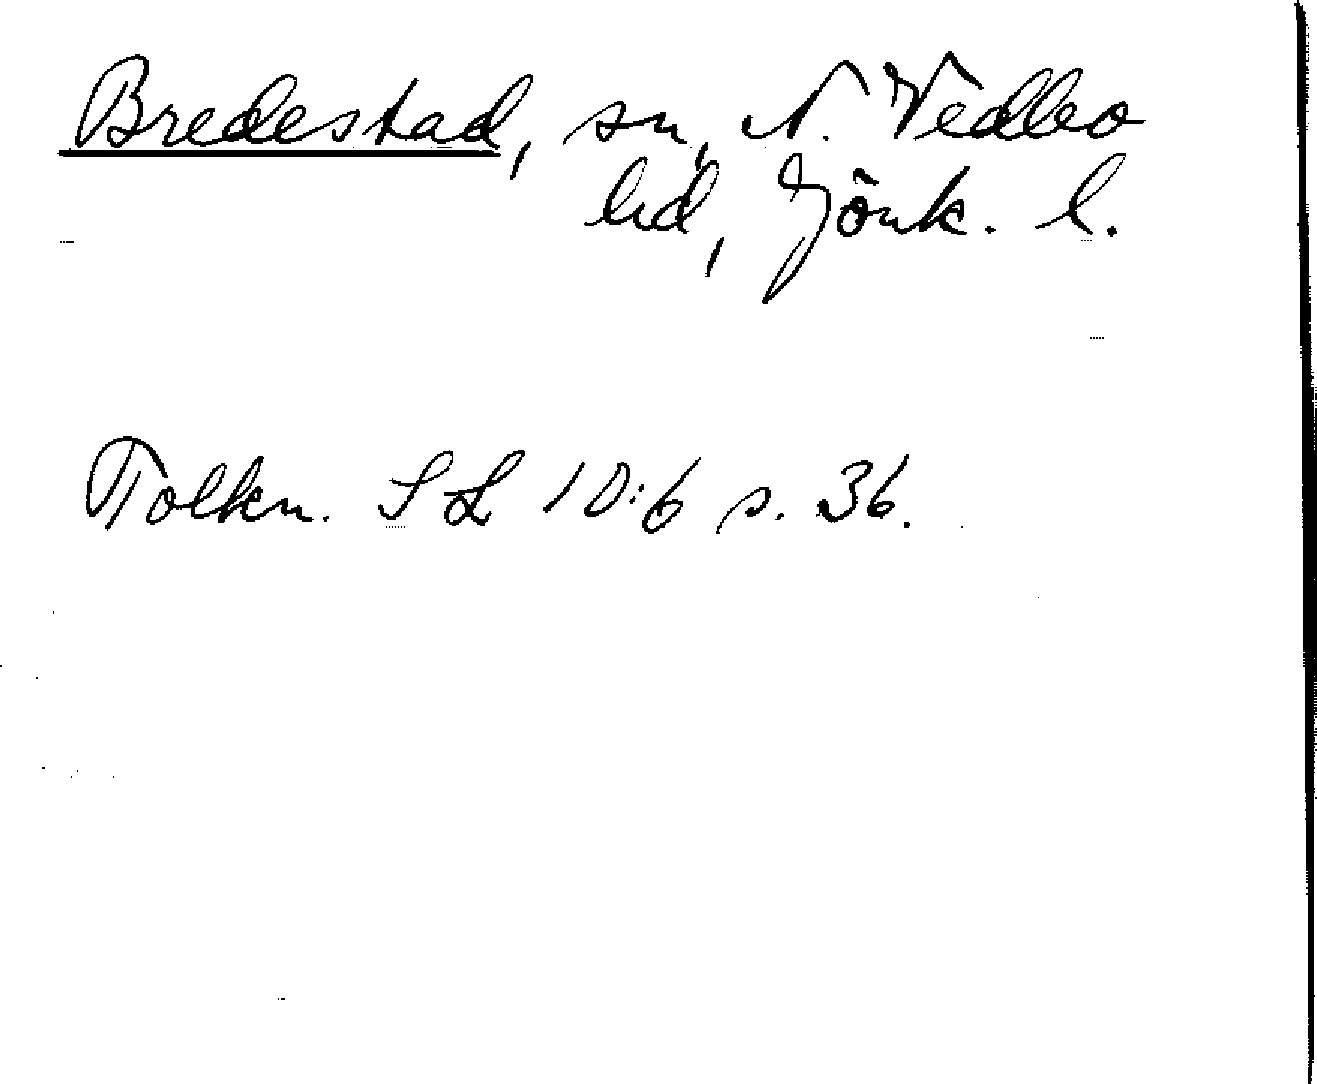 Bredestad, sn, N. Vedbo
hd, Jönk. l.
Tolkn. SL 10:6 s. 36.